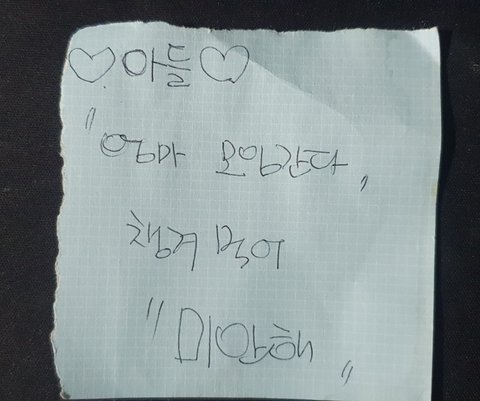 ♡아들♡
"엄마 모임간다"
챙겨 먹어
"미안해"